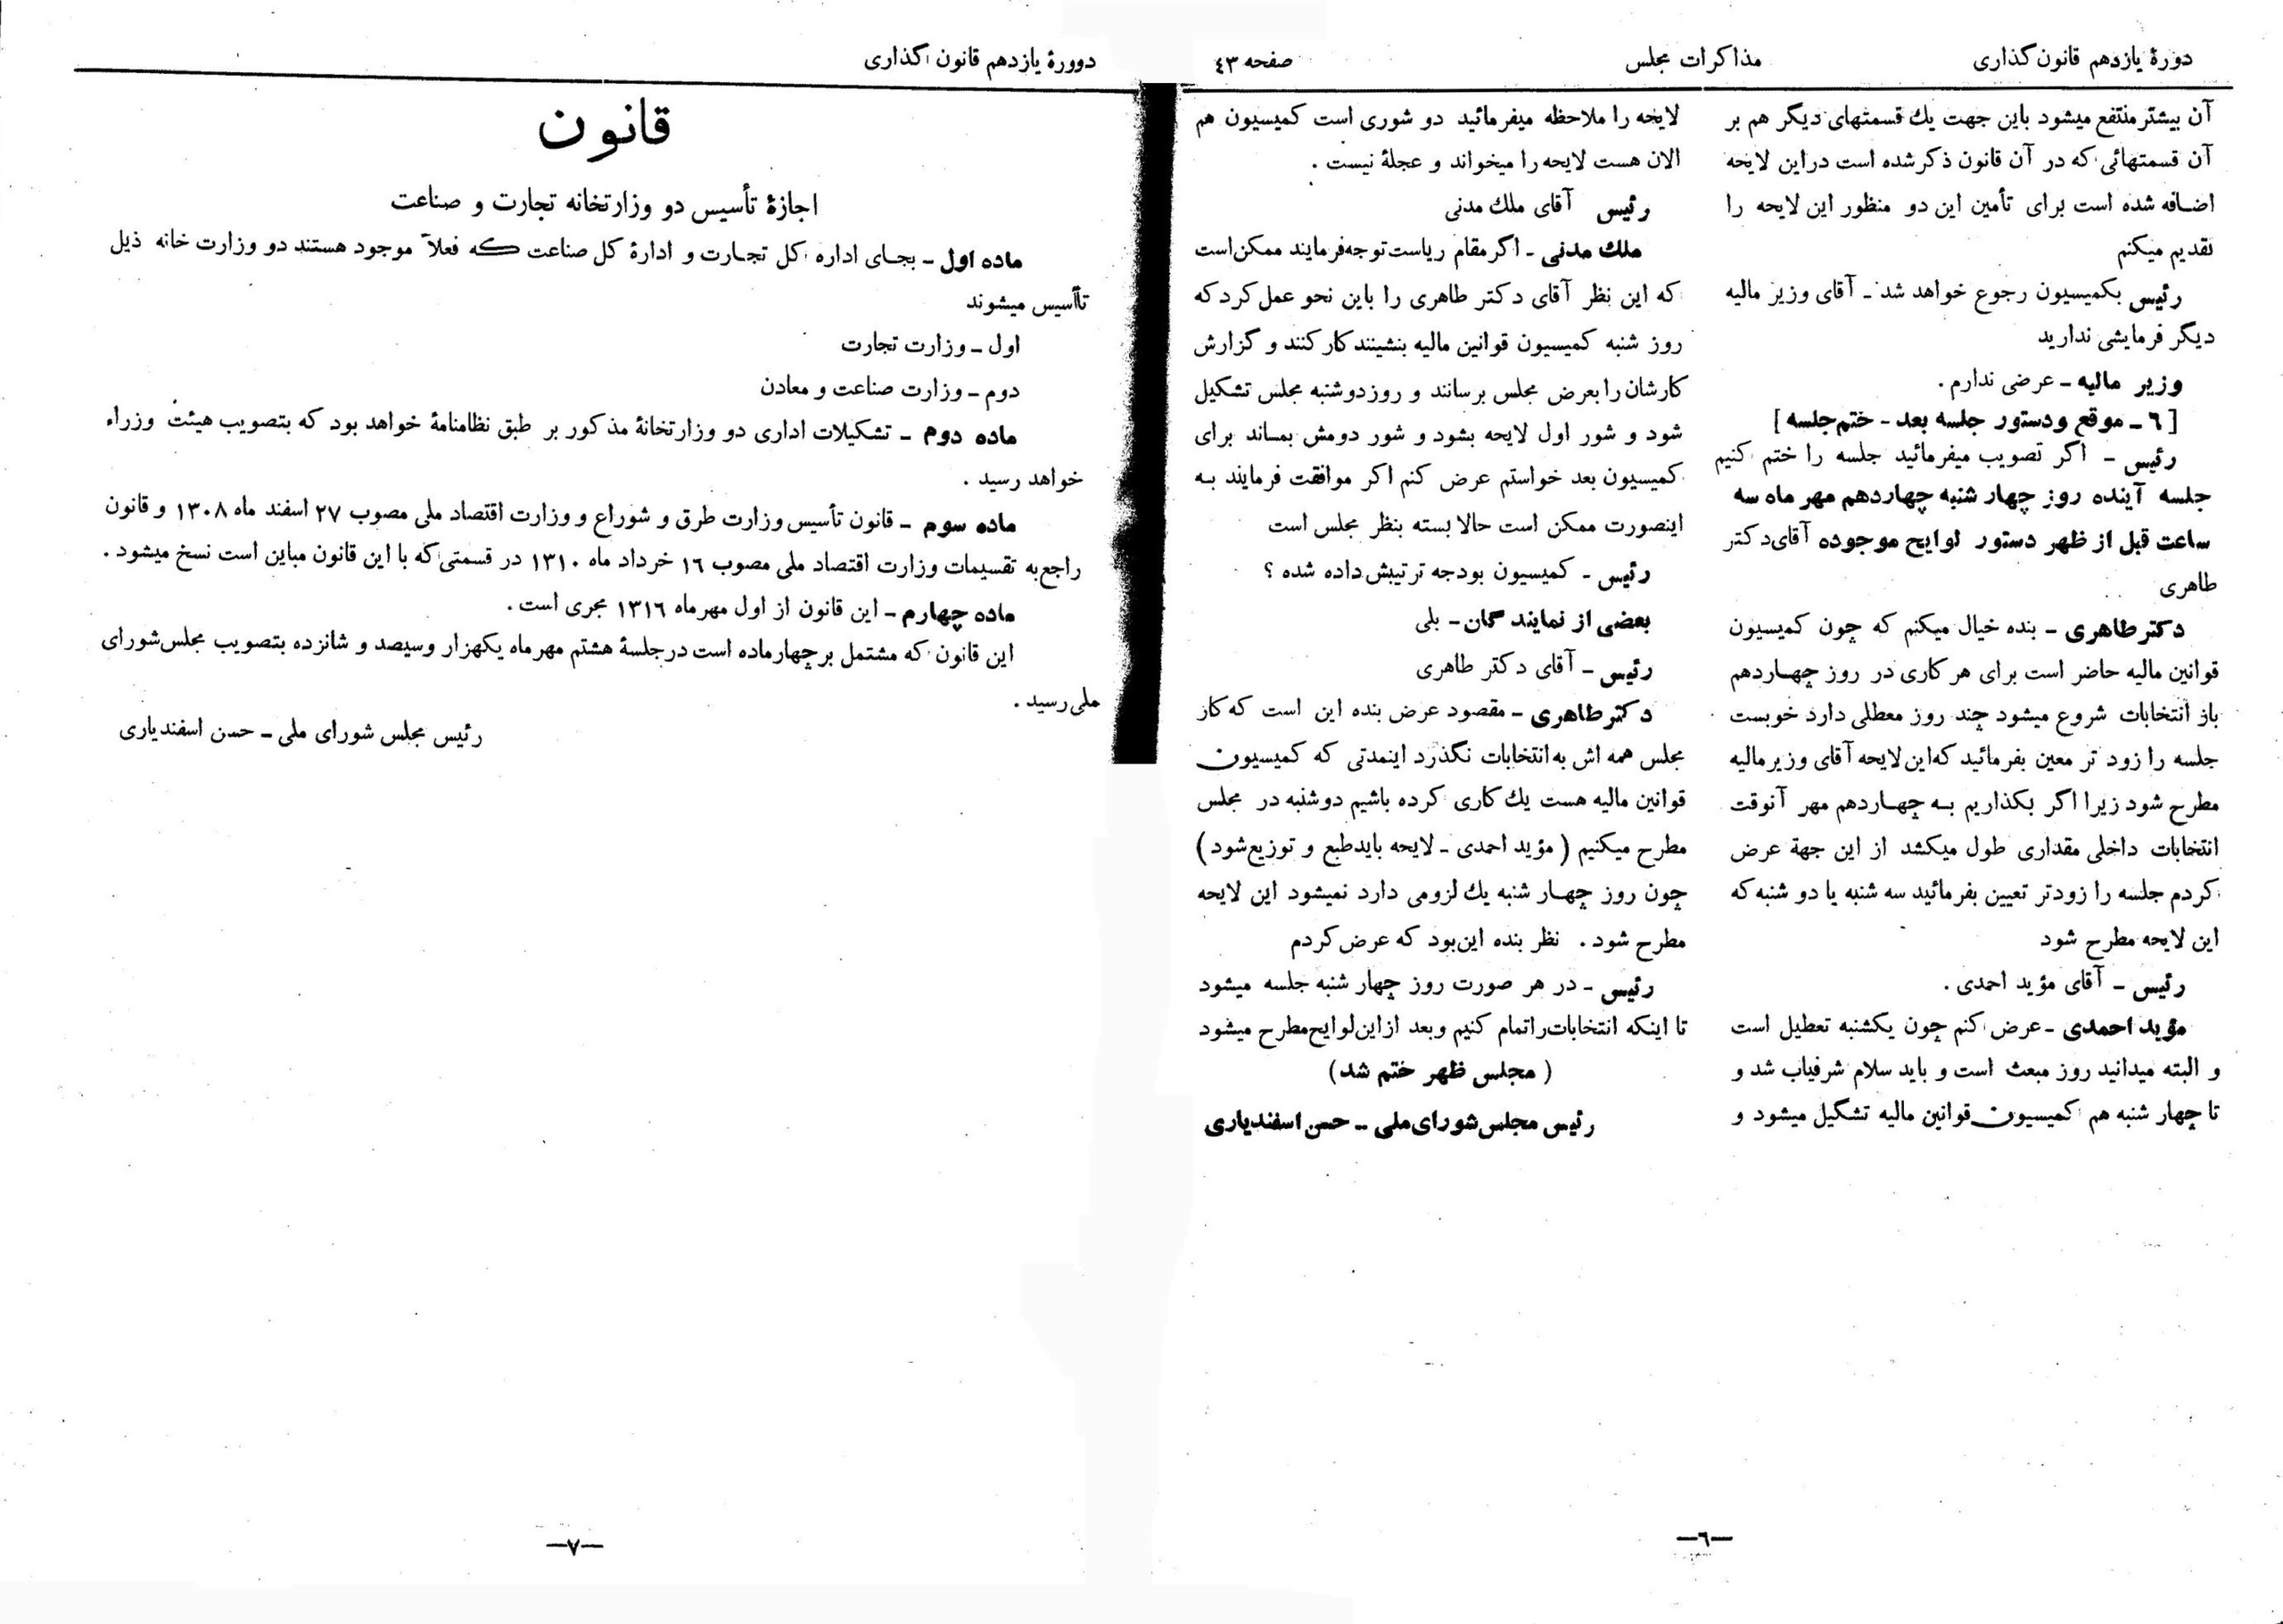 دورهٔ یازدهم قانون‌گذاری
مذاکرات مجلس
صفحه ٤٣
آن بیشتر منتفع میشود باین جهت یك قسمتهای دیگر هم بر
آن قسمتهائی که در آن قانون ذکر شده است دراین لایحه
اضافه شده است برای تأمین این دو منظور این لایحه را
تقدیم میکنم
رئیس بکمیسیون رجوع خواهد شد - آقای وزیر مالیه
دیگر فرمایشی ندارید
وزیر مالیه - عرضی ندارم .
[ ٦ - موقع ودستور جلسه بعد - ختم جلسه ]
رئیس - اکر تصویب میفرمائید جلسه را ختم کنیم
جلسه آینده روز چهار شنبه چهاردهم مهر ماه سه
ساعت قبل از ظهر دستور لوایح موجوده آقای دکتر
طاهری
دکتر طاهری - بنده خیال میکنم که چون کمیسیون
قوانین مالیه حاضر است برای هر کاری در روز چهاردهم
باز انتخابات شروع میشود چند روز معطلی دارد خوبست
جلسه را زود تر معین بفرمائید که‌این لایحه آقای وزیر مالیه
مطرح شود زیرا اکر بکذاریم به چهاردهم مهر آنوقت
انتخابات داخلی مقداری طول میکشد از این جهة عرض
کردم جلسه را زودتر تعیین بفرمائید سه شنبه یا دو شنبه که
این لایحه مطرح شود
رئیس - آقای مؤید احمدی .
مؤید احمدی - عرض کنم چون یکشنبه تعطیل است
و البته میدانید روز مبعث است و باید سلام شرفیاب شد و
تا چهار شنبه هم کمیسیون قوانین مالیه تشکیل میشود و
لایحه را ملاحظه میفرمائید دو شوری است کمیسیون هم
الان هست لایحه را میخواند و عجلهٔ نیست .
رئیس آقای ملك مدنی
ملك مدنی - اگر مقام ریاست توجه فرمایند ممکن است
که این نظر آقای دکتر طاهری را باین نحو عمل کرد که
روز شنبه کمیسیون قوانین مالیه بنشینند کار کنند و گزارش
کارشان را بعرض مجلس برسانند و روز دوشنبه مجلس تشکیل
شود و شور اول لایحه بشود و شور دومش بماند برای
کمیسیون بعد خواستم عرض کنم اکر موافقت فرمایند به
اینصورت ممکن است حالا بسته بنظر مجلس است
رئیس - کمیسیون بودجه ترتیبش داده شده ؟
بعضی از نمایند گان - بلی
رئیس - آقای دکتر طاهری
دکتر طاهری - مقصود عرض بنده این است که کار
مجلس همه اش به انتخابات نگذرد اینمدتی که کمیسیون
قوانین مالیه هست یك کاری کرده باشیم دوشنبه در مجلس
مطرح میکنیم ( مؤید احمدی - لایحه باید طبع و توزیع شود )
چون روز چهار شنبه یك لزومی دارد نمیشود این لایحه
مطرح شود . نظر بنده این بود که عرض کردم
رئیس - در هر صورت روز چهار شنبه جلسه میشود
تا اینکه انتخابات را تمام کنیم و بعد از این لوایح مطرح میشود
( مجلس ظهر ختم شد )
رئیس مجلس شورای ملی - حسن اسفندیاری
—٦—
دوورهٔ یازدهم قانون اگذاری
قانون
اجازهٔ تأسیس دو وزارتخانه تجارت و صناعت
ماده اول - بجای اداره کل تجارت و ادارهٔ کل صناعت که فعلاً موجود هستند دو وزارت خانه ذیل
تأسیس میشوند
اول - وزارت تجارت
دوم - وزارت صناعت و معادن
ماده دوم - تشکیلات اداری دو وزارتخانهٔ مذکور بر طبق نظامنامهٔ خواهد بود که بتصویب هیئت وزراء
خواهد رسید .
ماده سوم - قانون تأسیس وزارت طرق و شوراع و وزارت اقتصاد ملی مصوب ٢٧ اسفند ماه ١٣٠٨ و قانون
راجع به تقسیمات وزارت اقتصاد ملی مصوب ١٦ خرداد ماه ١٣١٠ در قسمتی که با این قانون مباین است نسخ میشود .
ماده چهارم - این قانون از اول مهرماه ١٣١٦ مجری است .
این قانون که مشتمل بر چهار ماده است در جلسهٔ هشتم مهرماه یکهزار و سیصد و شانزده بتصویب مجلس شورای
ملی رسید .
رئیس مجلس شورای ملی - حسن اسفندیاری
—٧—